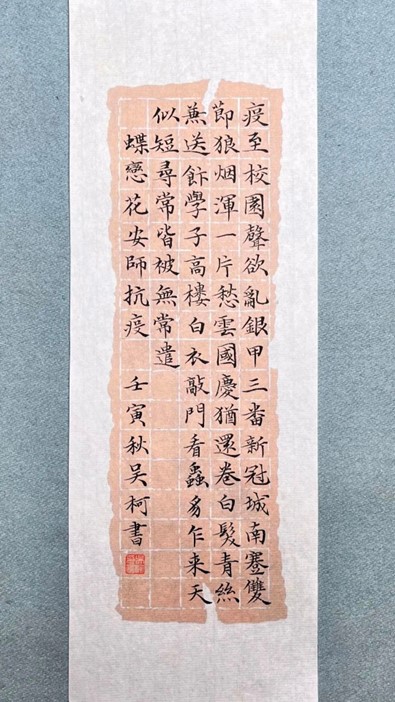 疫至校園聲欲亂銀甲三番新冠城南蹇雙
節狼烟渾一片愁雲國慶猶還卷白髮青絲
兼送飰學子高樓白衣敲門看蟲豸乍来天
似短尋常皆被無常遣
蝶戀花安師抗疫 壬寅秋吴柯書